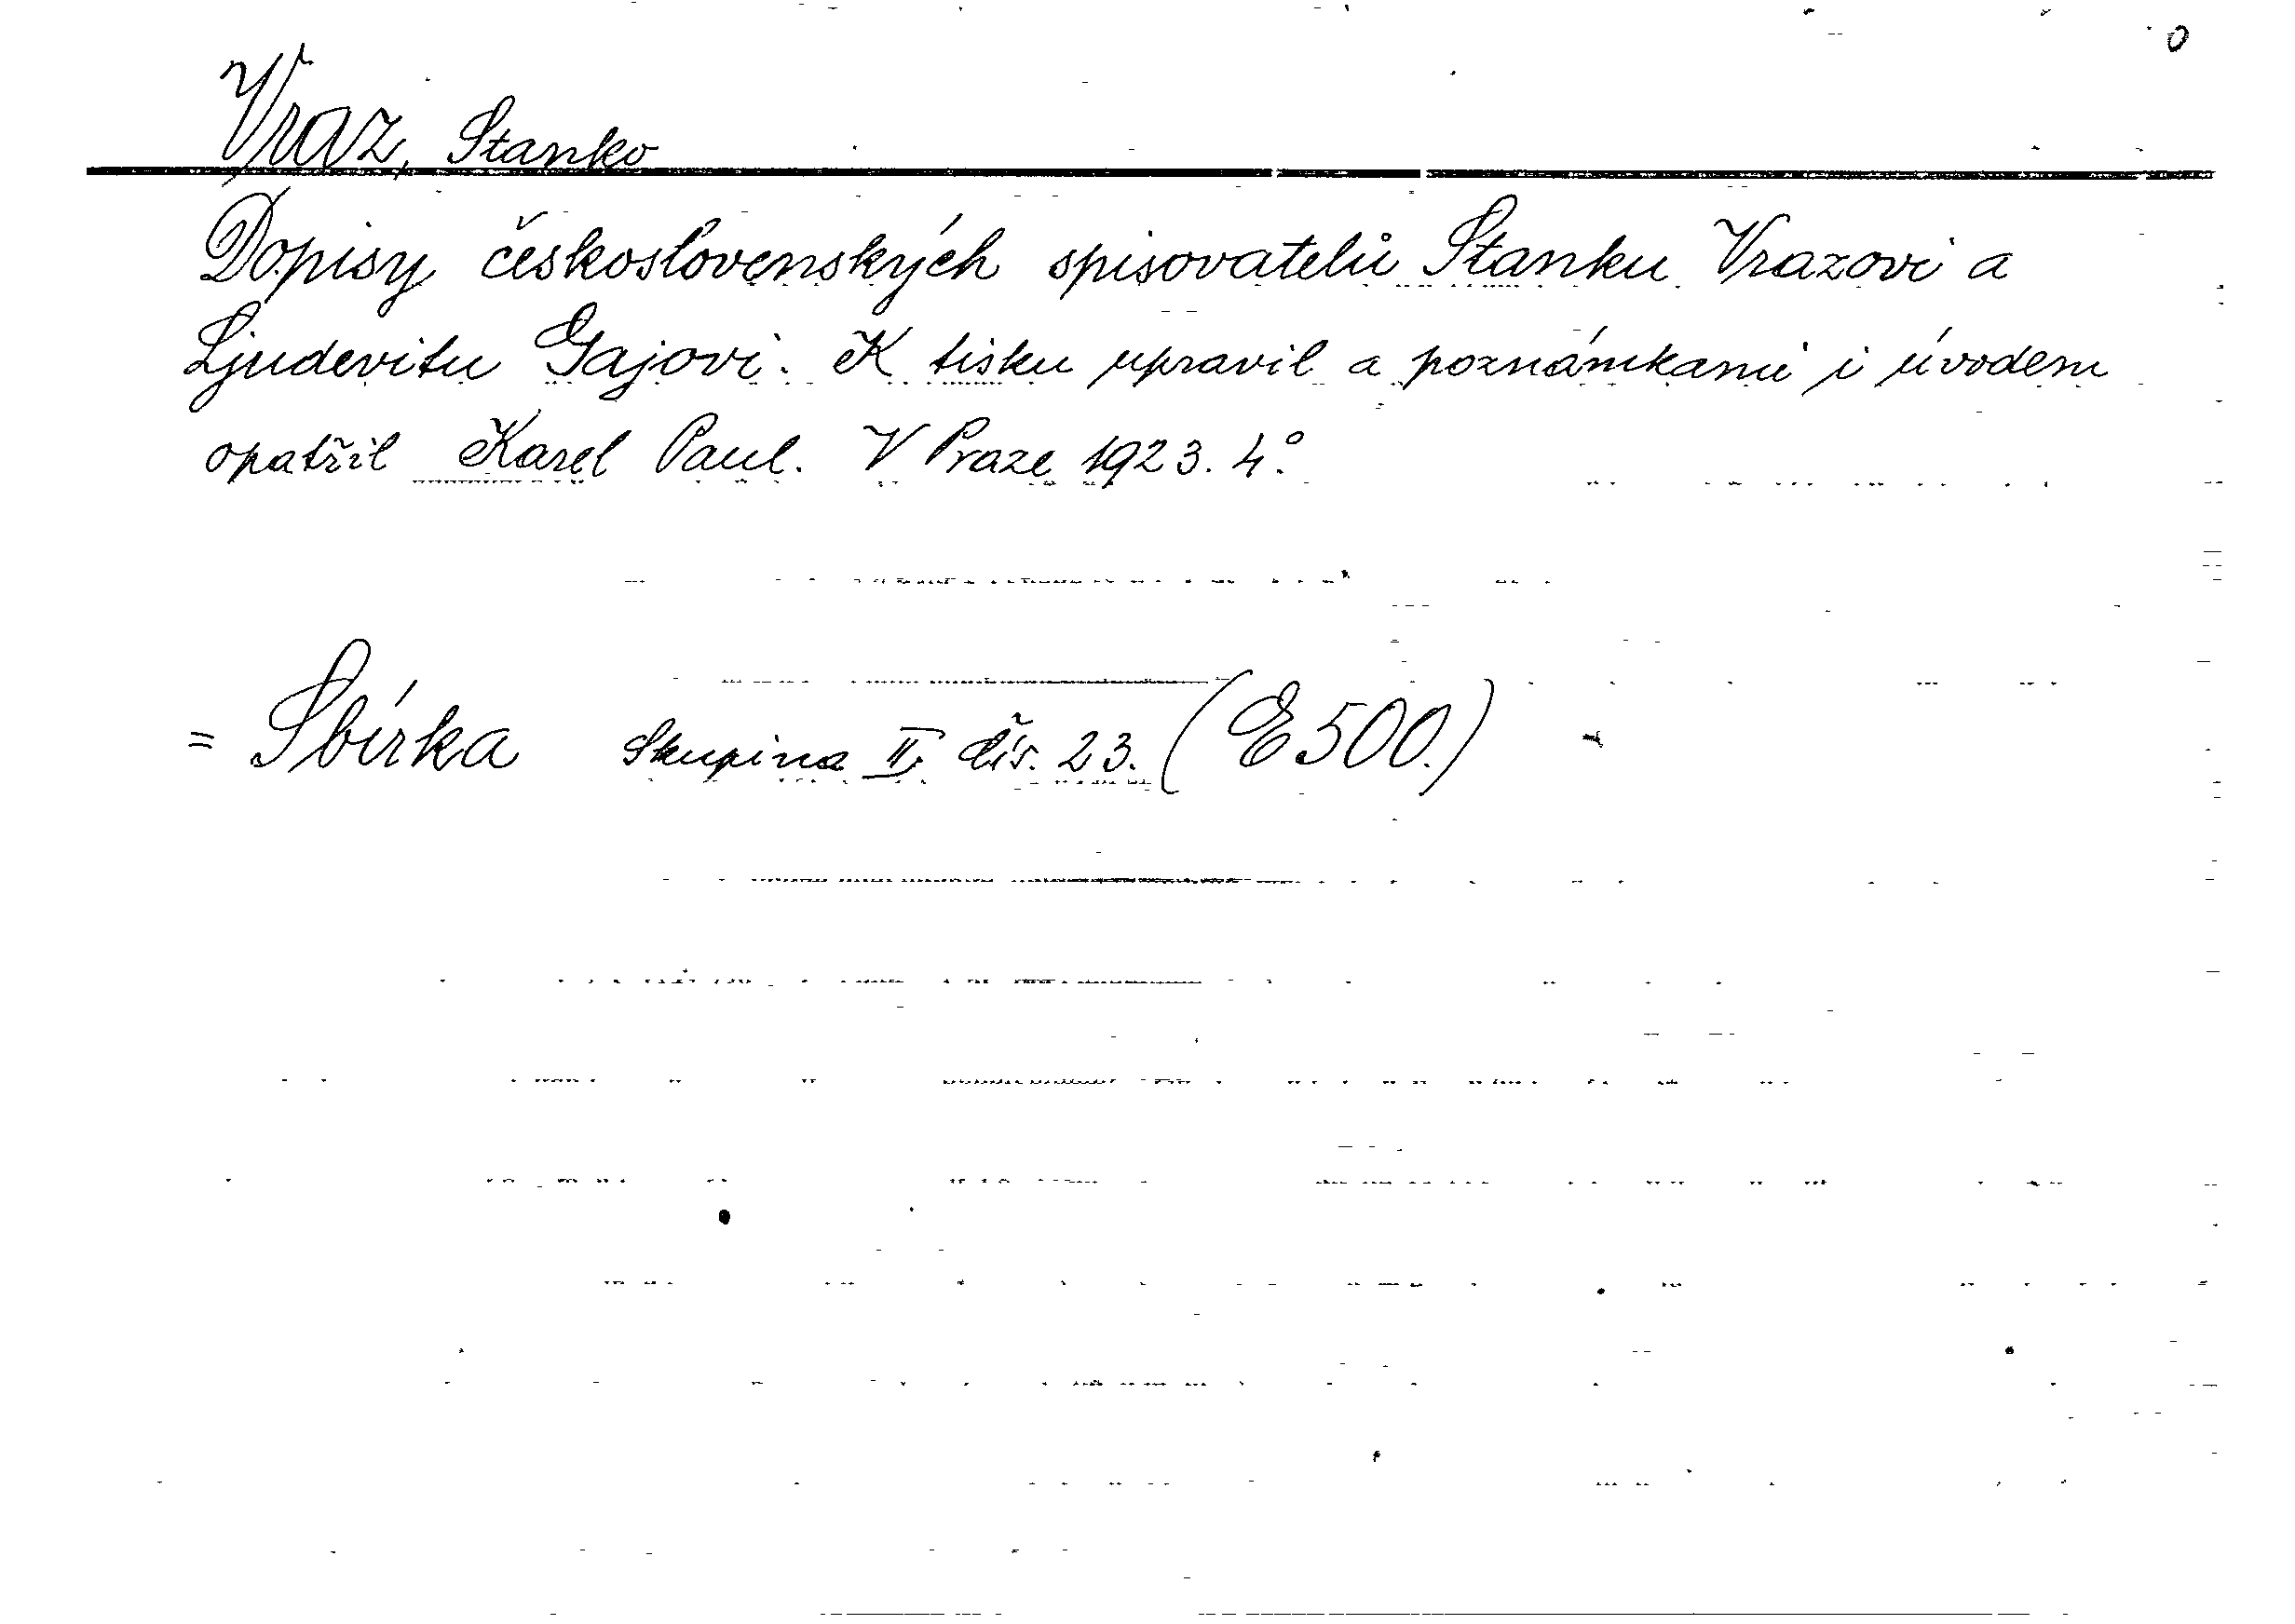 0
Vraz, Stanko
Dopisy československých spisovatelů Stanku Vrazovi a
Ljudevitu Gajovi. K tisku upravil a poznámkami i úvodem
opatřil Karel Paul. V Praze 1923. 4°.
= Sbírka skupina II. čís. 23. (E500.)